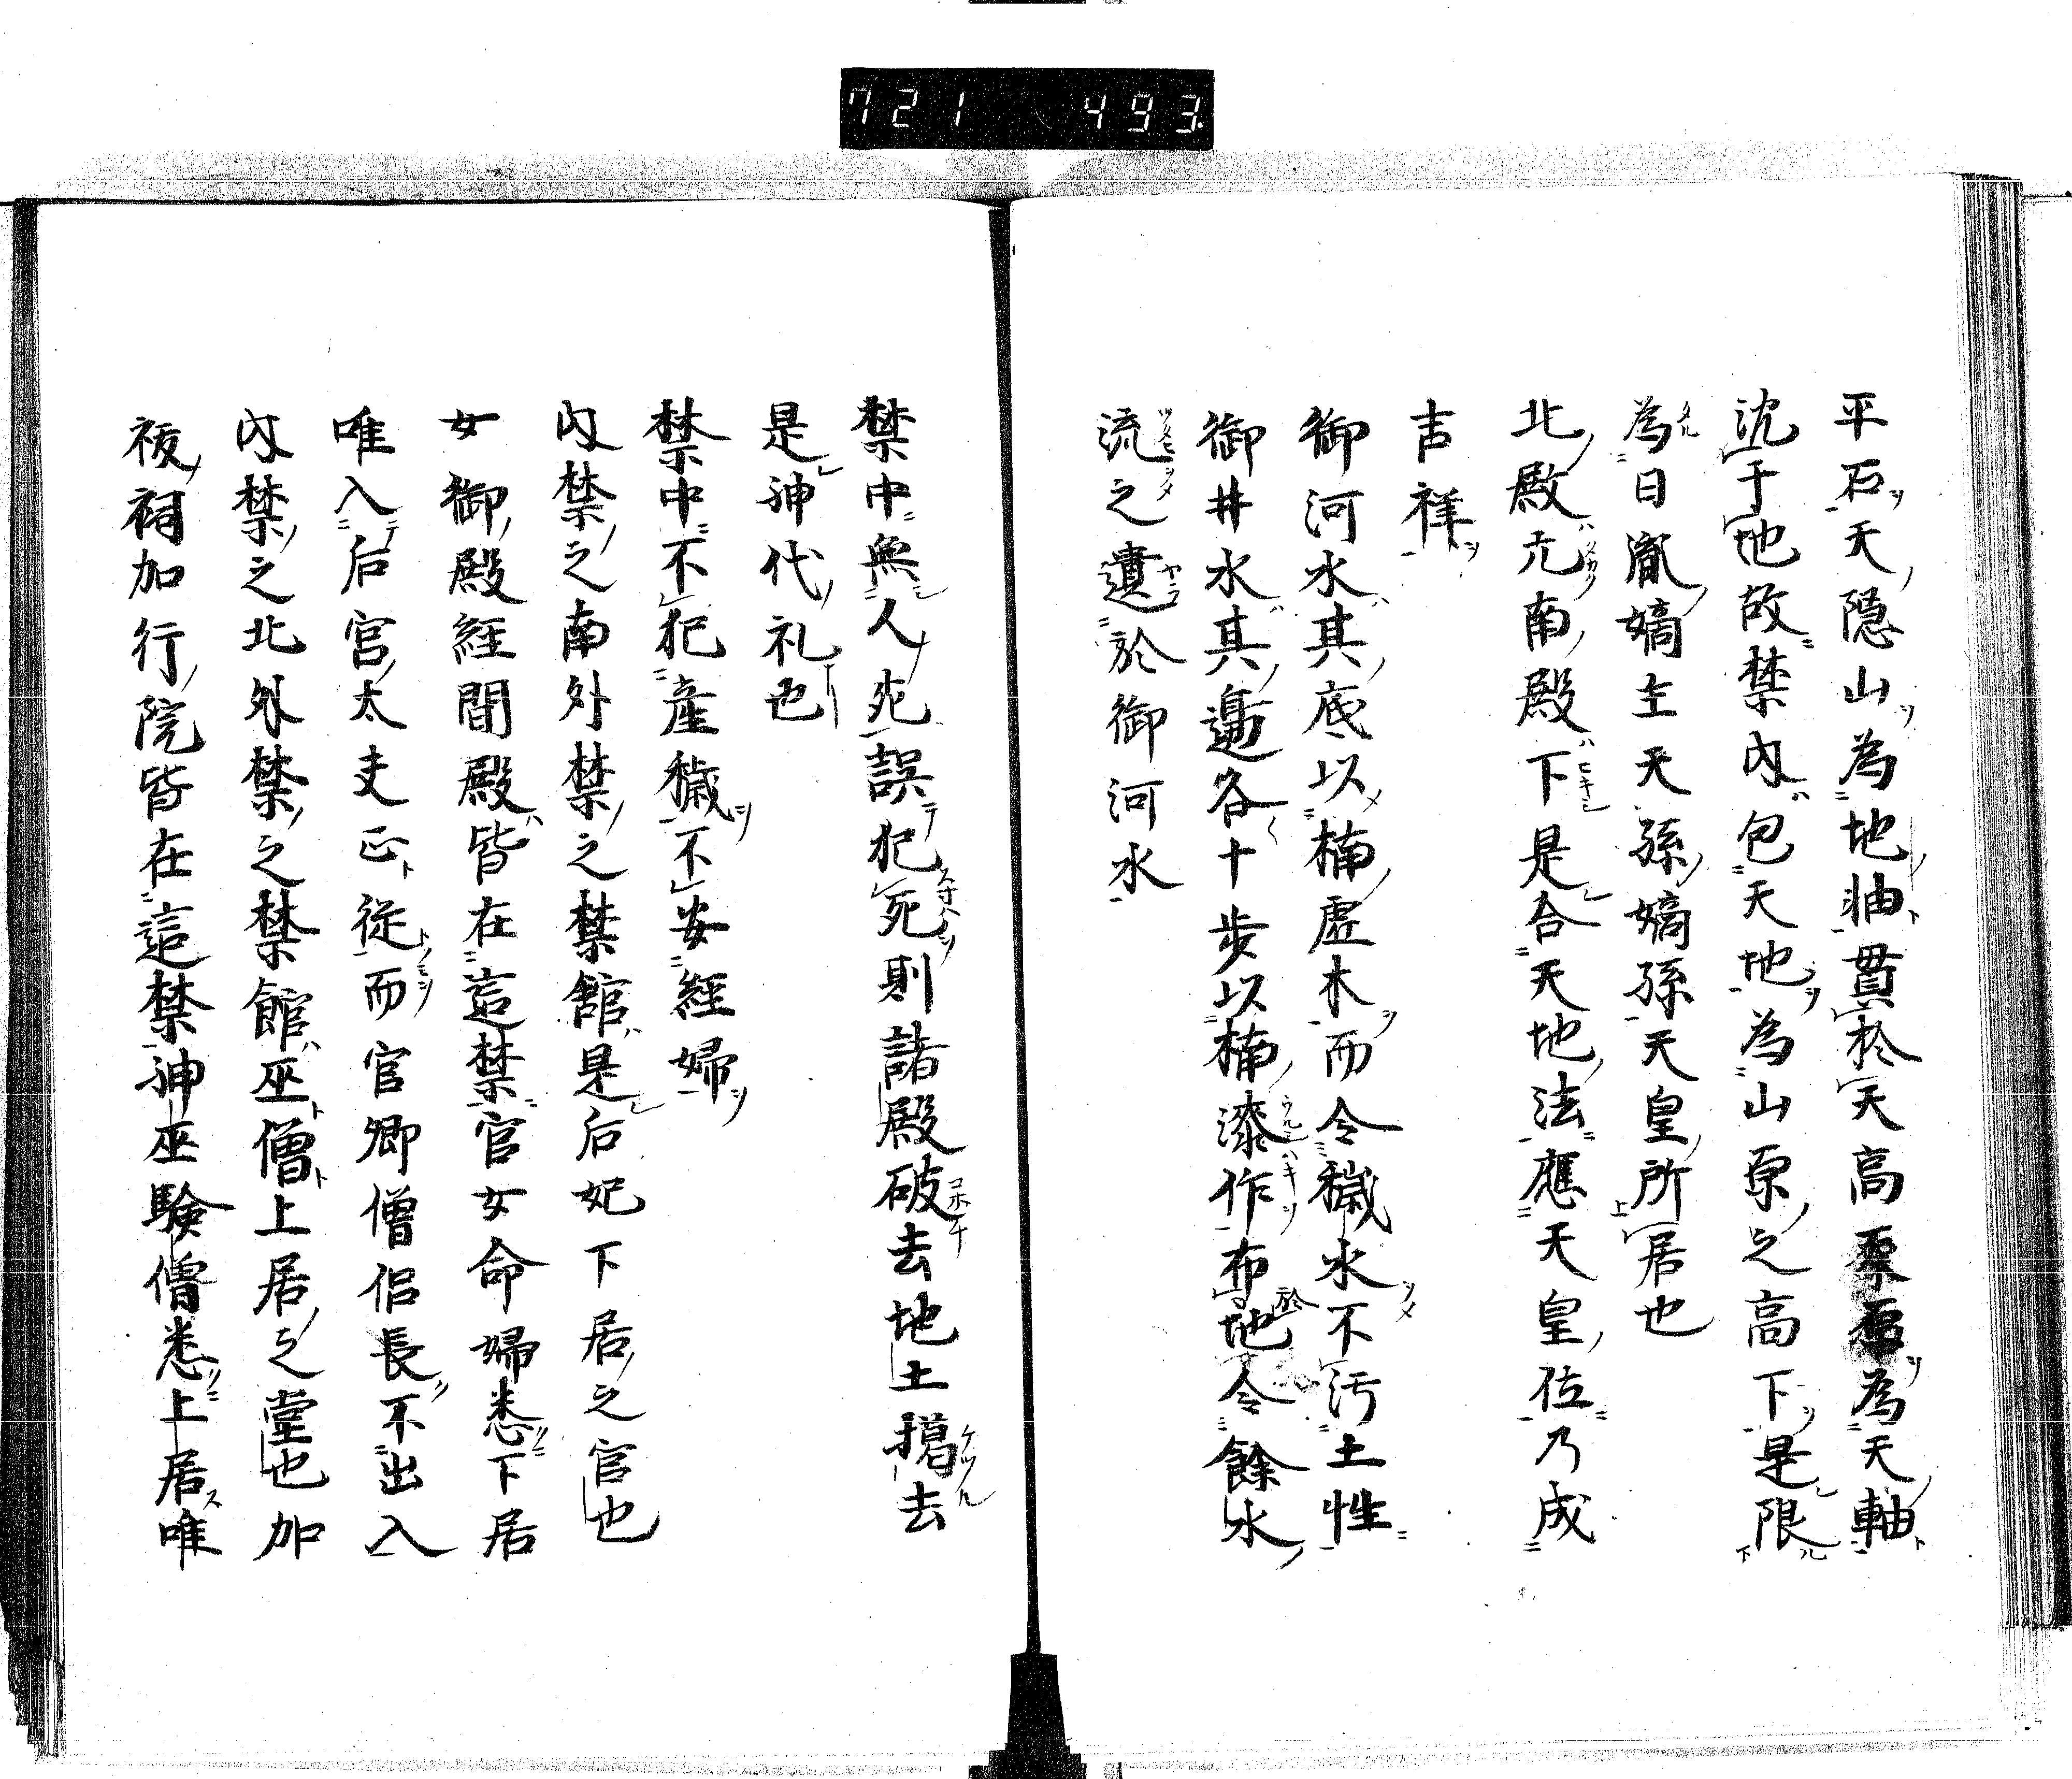 721 493
平石天隠山為地軸貫於天高為天軸
沈于地故禁内包天地為山原之高下是限
為日胤嫡主天孫嫡孫天皇所居也
北殿亢南殿下是合天地法應天皇位乃成
吉祥
御河水其底以楠虚木而令穢水不污土性
御井水其邊各十歩以楠漆作布於地令餘水
流之遺於御河水
禁中無人死誤犯死則諸殿破去地土掲去
是神代礼也
禁中不犯産穢不安經婦
内禁之南外禁之禁館是后妃下居之官也
女御殿經間殿皆在這禁官女命婦悉下居
唯入后宮太夫正從而官卿僧侶長不出入
内禁之北外禁之禁館巫僧上居之堂也加
祓祠加行院皆在這禁神巫験僧悉上居唯